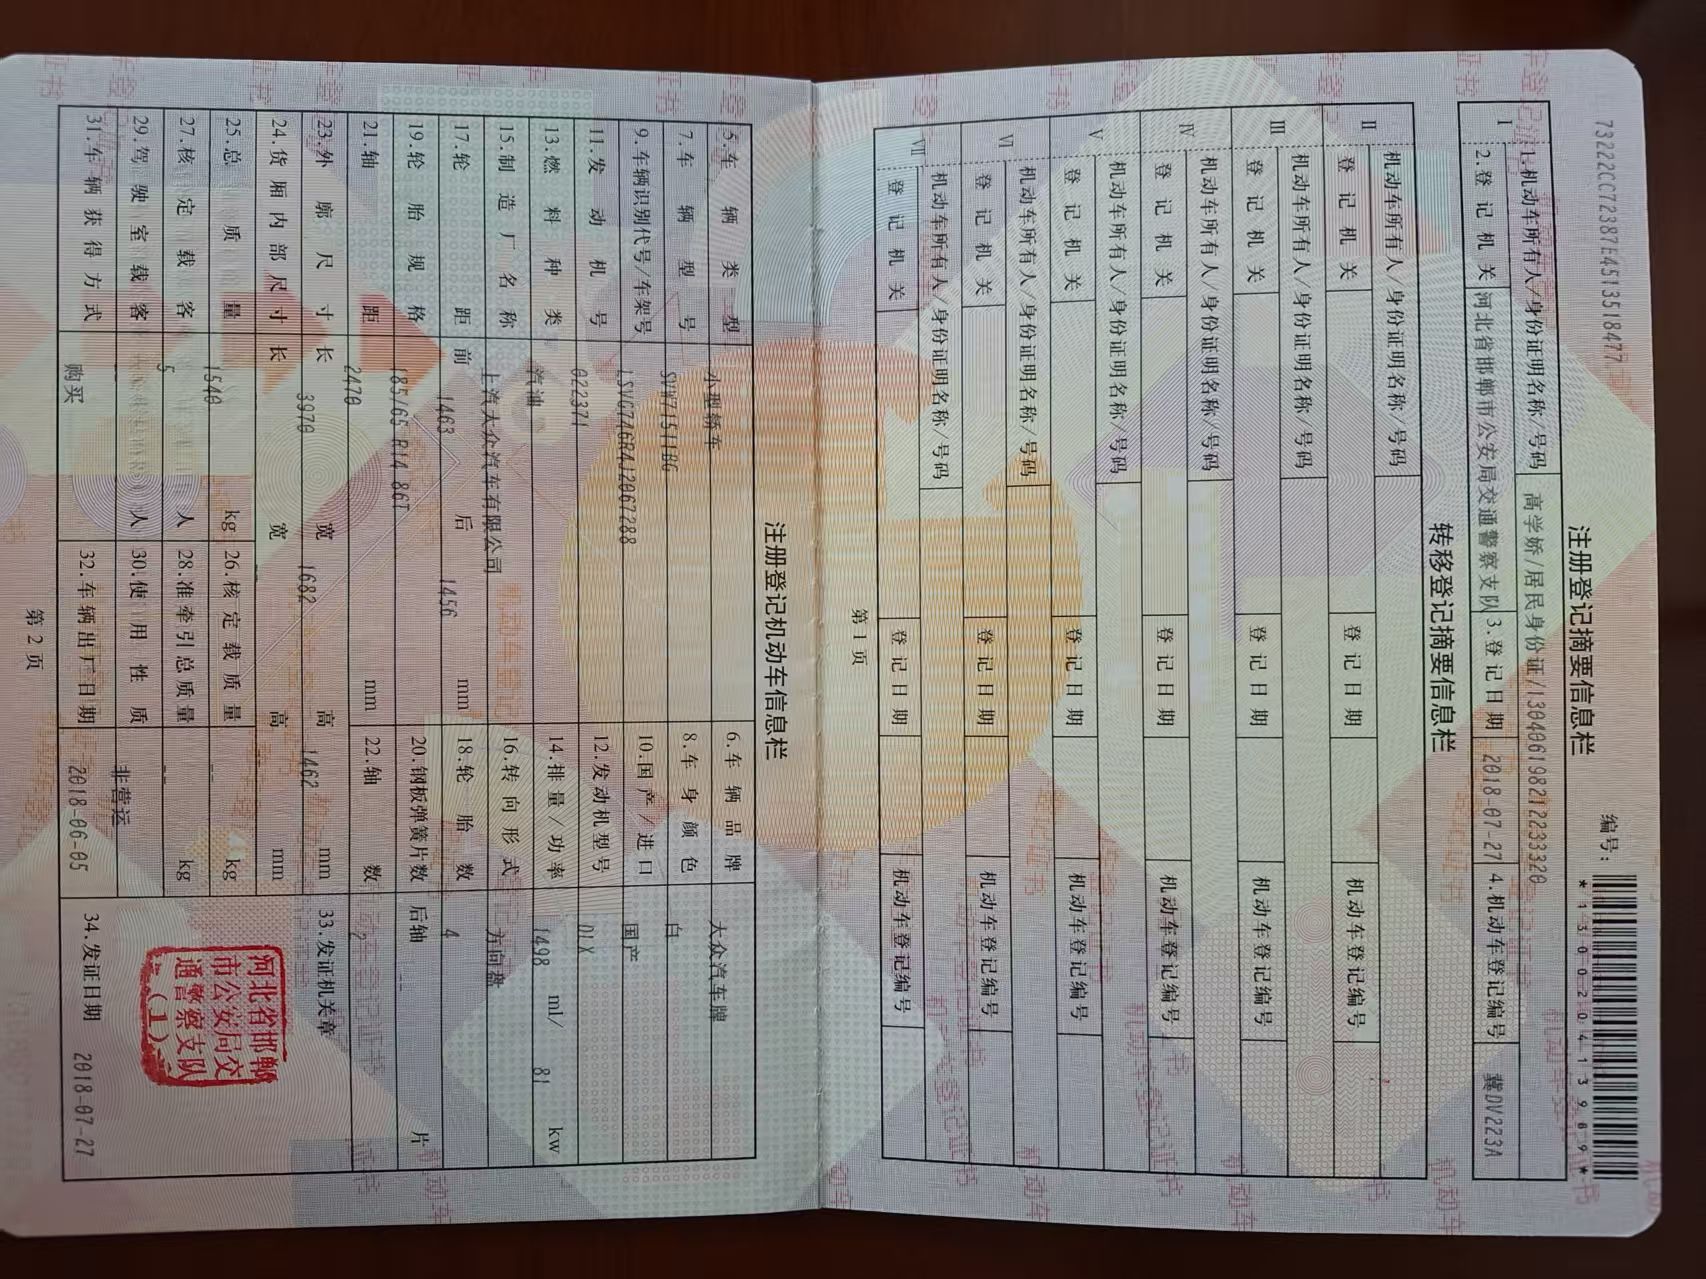 注册登记摘要信息栏
73222CC72387E4513518477
编号：
*130020413969*
I
1.机动车所有人/身份证明名称/号码 高学娇/居民身份证/130406198212233320
2.登记机关 河北省邯郸市公安局交通警察支队 3.登记日期 2018-07-27 4.机动车登记编号 冀DV223A
转移登记摘要信息栏
II 机动车所有人/身份证明名称/号码
登记机关 登记日期 机动车登记编号
III 机动车所有人/身份证明名称/号码
登记机关 登记日期 机动车登记编号
IV 机动车所有人/身份证明名称/号码
登记机关 登记日期 机动车登记编号
V 机动车所有人/身份证明名称/号码
登记机关 登记日期 机动车登记编号
VI 机动车所有人/身份证明名称/号码
登记机关 登记日期 机动车登记编号
VII 机动车所有人/身份证明名称/号码
登记机关 登记日期 机动车登记编号
第1页
注册登记机动车信息栏
5.车辆类型 小型轿车 6.车辆品牌 大众汽车牌
7.车辆型号 SVW7151FBG 8.车身颜色 白
9.车辆识别代号/车架号 LSVG746R4J2067288 10.国产/进口 国产
11.发动机号 022371 12.发动机型号 DLX
13.燃料种类 汽油 14.排量/功率 1498 ml/ 81 kw
15.制造厂名称 上汽大众汽车有限公司 16.转向形式 方向盘
17.轮距 前 1463 后 1456 mm 18.轮胎数 4
19.轮胎规格 185/65 R14 86T 20.钢板弹簧片数 后轴 -- 片
21.轴距 2470 mm 22.轴数 2
23.外廓尺寸 长 3970 宽 1682 高 1462 mm
24.货厢内部尺寸 长 宽 -- 高 mm
25.总质量 1540 kg 26.核定载质量 -- kg
27.核定载客 5 人 28.准牵引总质量 -- kg
29.驾驶室载客 -- 人 30.使用性质 非营运
31.车辆获得方式 购买 32.车辆出厂日期 2018-06-05
33.发证机关章
河北省邯郸
市公安局交
通警察支队
（1）
34.发证日期 2018-07-27
第2页